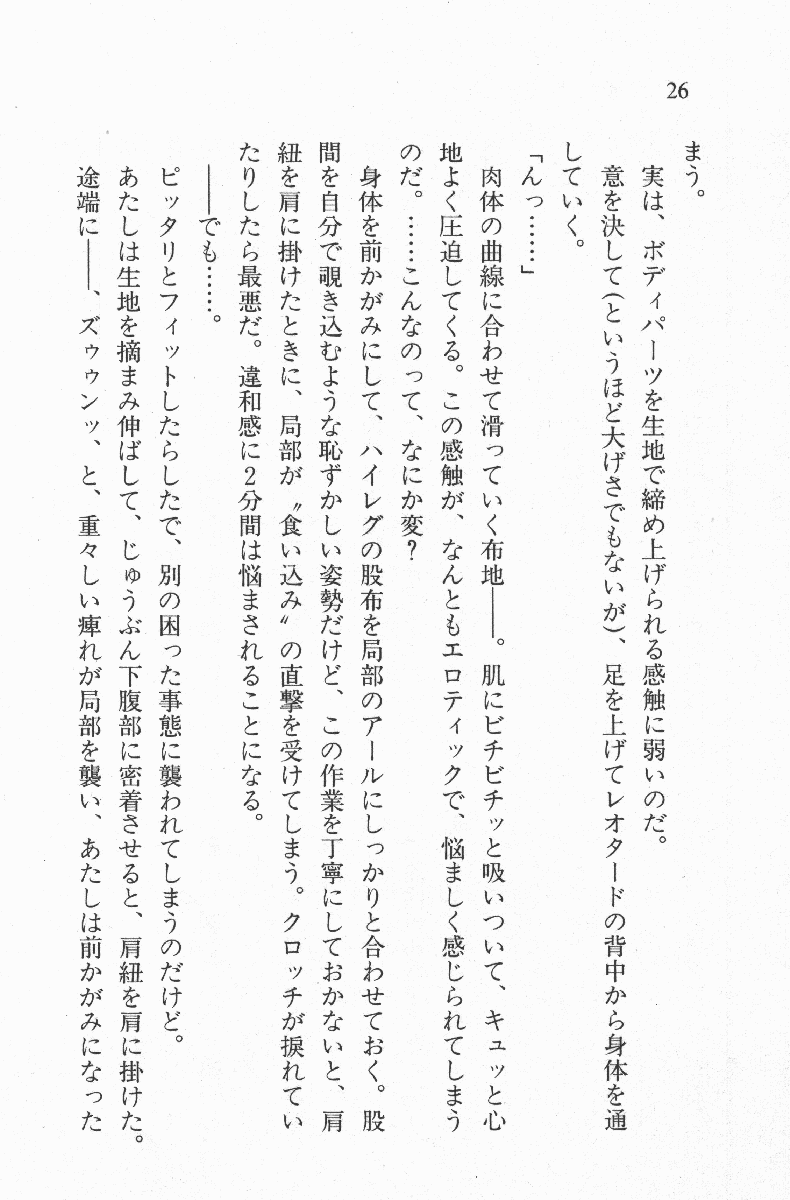 26
まう。
実は、ボディパーツを生地で締め上げられる感触に弱いのだ。
意を決して(というほど大げさでもないが)、足を上げてレオタードの背中から身体を通
していく。
「んっ……」
肉体の曲線に合わせて滑っていく布地――。肌にピチピチッと吸いついて、キュッと心
地よく圧迫してくる。この感触が、なんともエロティックで、悩ましく感じられてしまう
のだ。……こんなのって、なにか変?
身体を前かがみにして、ハイレグの股布を局部のアールにしっかりと合わせておく。股
間を自分で覗き込むような恥ずかしい姿勢だけど、この作業を丁寧にしておかないと、肩
紐を肩に掛けたときに、局部が〝食い込み〟の直撃を受けてしまう。クロッチが捩れてい
たりしたら最悪だ。違和感に2分間は悩まされることになる。
――でも……。
ピッタリとフィットしたらしたで、別の困った事態に襲われてしまうのだけど。
あたしは生地を摘まみ伸ばして、じゅうぶん下腹部に密着させると、肩紐を肩に掛けた。
途端に――、ズゥゥンッ、と、重々しい痺れが局部を襲い、あたしは前かがみになった